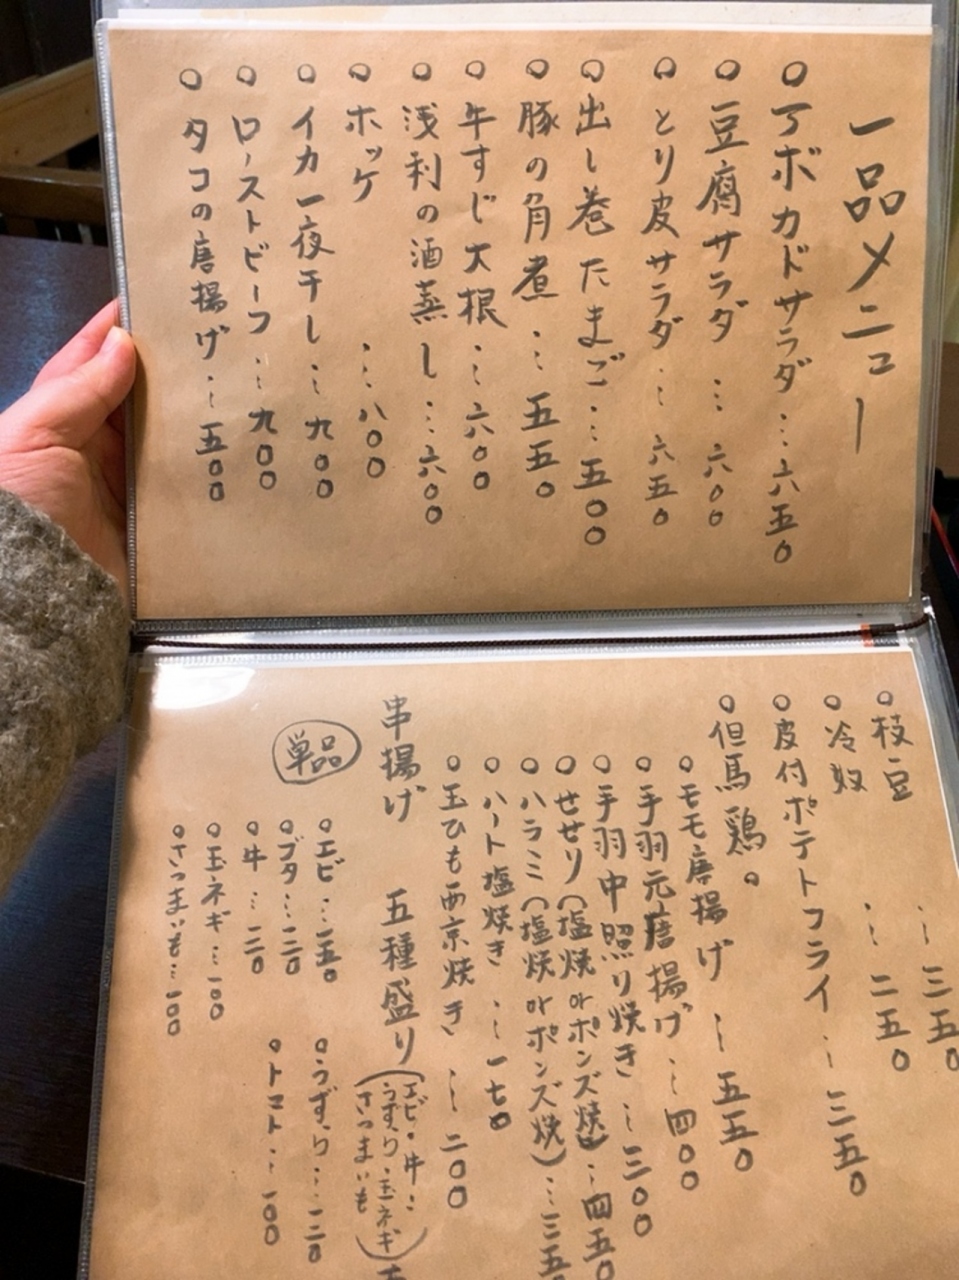 一品メニュー
○アボカドサラダ…六五〇
○豆腐サラダ…六〇〇
○とり皮サラダ…六五〇
○出し巻たまご…五〇〇
○豚の角煮…五五〇
○牛すじ大根…六〇〇
○浅利の酒蒸し…六〇〇
○ホッケ…八〇〇
○イカ一夜干し…九〇〇
○ローストビーフ…九〇〇
○タコの唐揚げ…五〇〇
○枝豆…三五〇
○冷奴…二五〇
○皮付ポテトフライ…三五〇
○但馬鶏。
○モモ唐揚げ…五五〇
○手羽元唐揚げ…四〇〇
○手羽中照り焼き…三〇〇
○せせり(塩焼orポンズ焼)…四五〇
○ハラミ(塩焼orポンズ焼)…三五
○ハート塩焼き…一七〇
○玉ひも西京焼き…二〇〇
串揚げ 五種盛り(エビ・牛・うずら・玉ネギ さつまいも)
単品
○エビ…一五〇
○うずら…一二〇
○ブタ…一二〇
○トマト…一〇〇
○牛…一二〇
○玉ネギ…一〇〇
○さつまいも…一〇〇